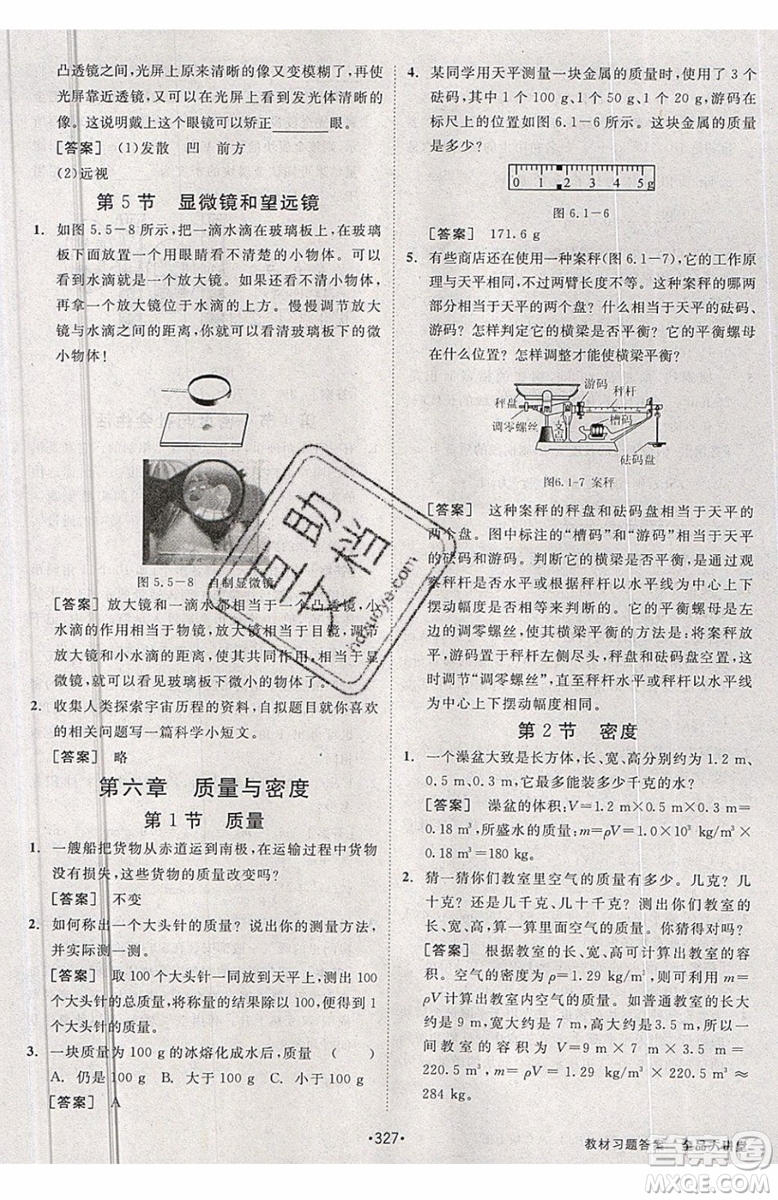 凸透镜之间,光屏上原来清晰的像又变模糊了,再使
光屏靠近透镜,又能在光屏上看到发光体清晰的
像。这说明戴上这个眼镜可矫正________眼。
[答案] (1)发散 凹 前方
(2)远视
第 5 节 显微镜和望远镜
1. 如图 5.5-8 所示,把一滴水滴在玻璃板上,在玻璃
板下面不远处用一个用眼睛看不清的小物体。
然后,再拿一个放大镜位于水滴的上方。慢慢调节放大
镜与水滴之间的距离,你就可以看清玻璃板下的微
小物体!
图 5.5-8 自制显微镜
[答案] 放大镜和一滴水都相当于一个凸透镜,小
水滴的作用相当于物镜,放大镜相当于目镜,调节
放大镜和小水滴的距离,使它们的组合相当于显
微镜,其共同作用,可见玻璃板下微小的物体。
2. 收集人类探索宇宙历程的资料,自拟题目就你喜欢
的相关问题写一篇科学小短文。
[答案] 略
第六章 质量与密度
第 1 节 质量
1. 一艘船把货物从赤道运到南极,在运输过程中货物
没有损失,这些货物的质量改变了吗?
[答案] 不变
2. 如何称出一个大头针的质量?说出你的测量方法,
并实际测一测。
[答案] 取 100 个大头针一同放到天平上,测得 100
个大头针的总质量,将得的结果除以 100,便得到一
个大头针的质量。
3. 一块质量为 100 g 的冰熔化成水后,其质量 ( )
A. 仍是 100 g B. 大于 100 g C. 小于 100 g
[答案] A
4. 某同学用天平测量一块金属的质量时,使用了 3 个
砝码,其中 1 个 100 g、1 个 50 g、1 个 20 g,游码在
标尺上的位置如图 6.1-6 所示。这块金属的质量
是多少?
0 1 2 3 4 5g
图 6.1-6
[答案] 171.6 g
5. 有些商店还在使用一种案秤(图 6.1-7),它的工作原
理与天平相同,不过两臂长度不等。这种案秤的哪两
部分相当于天平的两个盘?什么相当于天平的砝码、
游码?怎样判断它的横梁是否平衡?它的平衡螺母
在什么位置?怎样调整才能使横梁平衡?
秤盘
游码
秤杆
调零螺丝
槽码
砝码盘
图6.1-7 案秤
[答案] 这种案秤的秤盘和砝码盘相当于天平的
两个盘。图中标注的“槽码”和“游码”相当于天
平的砝码和游码。判断它的横梁是否平衡的方
法是看秤杆是否水平或秤杆以水平线为中心上
下摆动的幅度是否相同。它的平衡螺母是左边
的调零螺丝,使横梁平衡的方法是:将案秤放水
平,游码归零,秤盘和砝码盘中不放任何物体,调
节“调零螺丝”,至秤杆水平或秤杆以水平线
为中心上下摆动幅度相同。
第 2 节 密度
1. 一个澡盆大致是长方体,长、宽、高分别约为 1.2 m、
0.5 m、0.3 m,它最多能装多少千克的水?
[答案] 澡盆的体积:V=1.2 m×0.5 m×0.3 m=
0.18 m³,所盛水的质量:m=ρV=1×10³ kg/m³×
0.18 m³=180 kg。
2. 猜一猜你们教室里空气的质量有多少。几克?几
十克?还是几千克、几十千克?测出你们教室的
长、宽、高,算一算里面空气的质量。你猜得对吗?
[答案] 根据教室的长、宽、高可计算出教室的容
积。空气的密度为 ρ=1.29 kg/m³,可根据 m=
ρV 计算出教室内空气的质量。如普通教室一般
长约是 9 m,宽大约是 7 m,高大约是 3.5 m,所以一
间教室内的空气质量:m=ρV=1.29 kg/m³×
9 m×7 m×3.5 m≈
284 kg。
·327·
教材习题答案
全品大讲堂
互助文档
huzuoye.com
作业帮
MZUOYE.COM